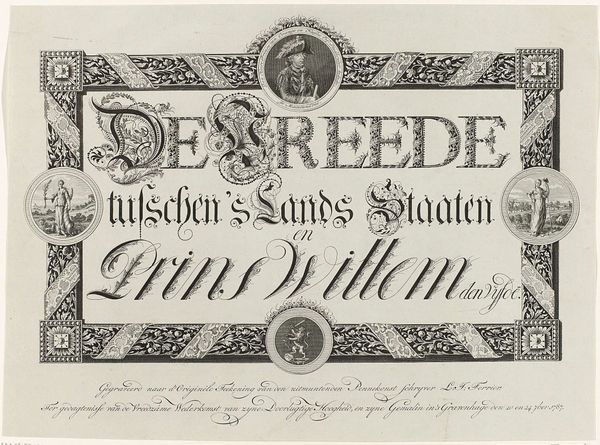 DE VREEDE
tusschen 's Lands Staaten
en
Prins Willem den Vyfde.
Gegraveerd naar d'Originéle Tekening van den uitmuntenden Pennekonst schryver L. F. Ferrier.
Ter gedagtenisse van de Vreedzame Wederkomst van zyne Doorlugtige Hoogheid, en zyne Gemalin in 's Gravenhage den 20 en 24 7ber. 1787.